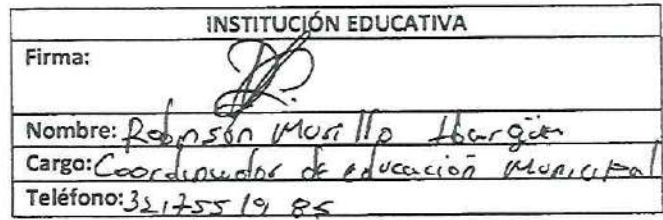 INSTITUCIÓN EDUCATIVA
Firma:
Nombre: Robinson Murillo Ibargüen
Cargo: Coordinador de educación Municipal
Teléfono: 3217551985